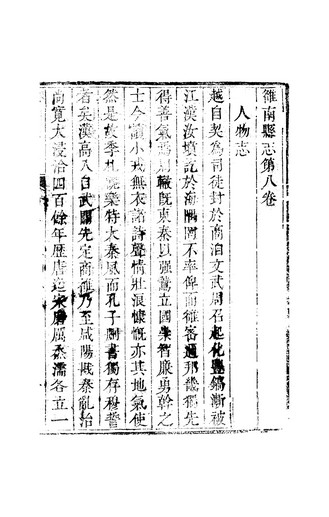 雒南縣志第八卷
人物志
越自契為司徒封於商洎文武周召起化豐鎬漸被
江漢汝墳訖於海隅罔不率俾而雒密邇邦畿獨先
得善氣焉周轍既東秦以强鷙立國崇智廉勇幹之
士今讀小戎無衣諸詩聲情壯浪慷慨亦其地氣使
然是故季札觀樂特大秦風而孔子刪書獨存穆誓
者矣漢高入自武關先定商雒乃至咸陽戡秦亂治
尚寬大浸洽四百餘年歷唐迄宋磨厲柔濡各立一